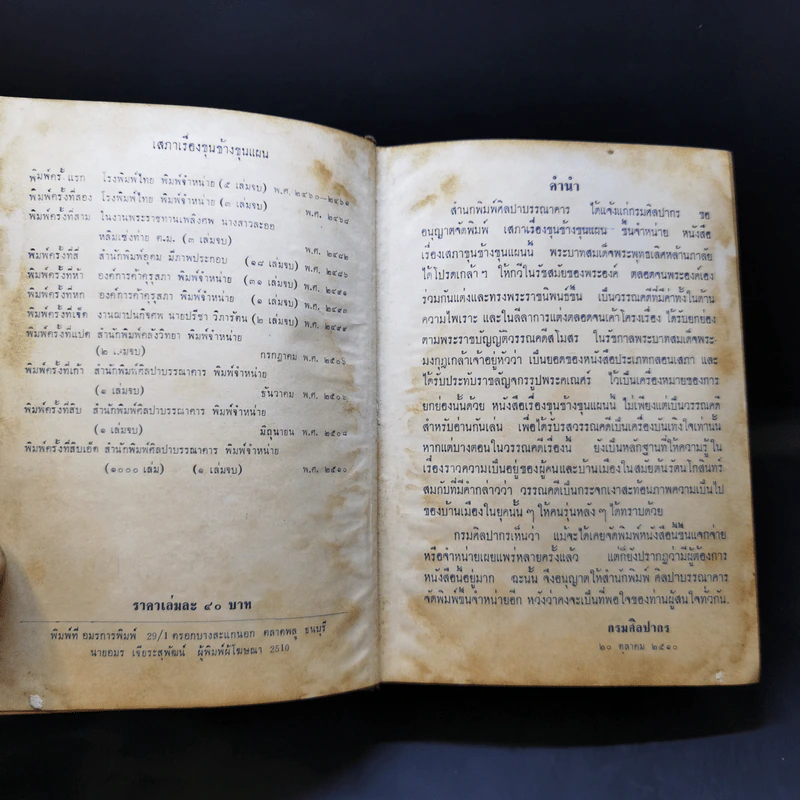 เสภาเรื่องขุนช้างขุนแผน
พิมพ์ครั้งแรก โรงพิมพ์ไทย พิมพ์จำหน่าย (๕ เล่มจบ) พ.ศ. ๒๔๖๐—๒๔๖๑
พิมพ์ครั้งที่สอง โรงพิมพ์ไทย พิมพ์จำหน่าย (๓ เล่มจบ) พ.ศ. ๒๔๖๘
พิมพ์ครั้งที่สาม ในงานพระราชทานเพลิงศพ นางสาวละออ
หลิมเซ่งท่าย ค.ม. (๓ เล่มจบ) พ.ศ. ๒๔๘๒
พิมพ์ครั้งที่สี่ สำนักพิมพ์อุดม มีภาพประกอบ (๑๘ เล่มจบ) พ.ศ. ๒๔๘๖
พิมพ์ครั้งที่ห้า องค์การค้าคุรุสภา พิมพ์จำหน่าย (๓๑ เล่มจบ) พ.ศ. ๒๔๙๑
พิมพ์ครั้งที่หก องค์การค้าคุรุสภา พิมพ์จำหน่าย (๑ เล่มจบ) พ.ศ. ๒๔๙๓
พิมพ์ครั้งที่เจ็ด งานฌาปนกิจศพ นายปรีชา วิภารัตน (๒ เล่มจบ) พ.ศ. ๒๔๙๙
พิมพ์ครั้งที่แปด สำนักพิมพ์คลังวิทยา พิมพ์จำหน่าย
(๒ เล่มจบ) กรกฎาคม พ.ศ. ๒๕๐๖
พิมพ์ครั้งที่เก้า สำนักพิมพ์ศิลปาบรรณาคาร พิมพ์จำหน่าย
(๑ เล่มจบ) ธันวาคม พ.ศ. ๒๕๐๖
พิมพ์ครั้งที่สิบ สำนักพิมพ์ศิลปาบรรณาคาร พิมพ์จำหน่าย
(๑ เล่มจบ) มิถุนายน พ.ศ. ๒๕๐๘
พิมพ์ครั้งที่สิบเอ็ด สำนักพิมพ์ศิลปาบรรณาคาร พิมพ์จำหน่าย
(๑๐๐๐ เล่ม) (๑ เล่มจบ) พ.ศ. ๒๕๑๐
ราคาเล่มละ ๔๐ บาท
พิมพ์ที่ อมรการพิมพ์ 29/1 ตรอกบางสะแกนอก ตลาดพลู ธนบุรี
นายอมร เจียระสุพัฒน์ ผู้พิมพ์ผู้โฆษณา 2510
คำนำ
สำนักพิมพ์ศิลปาบรรณาคาร ได้แจ้งแก่กรมศิลปากร ขอ
อนุญาตจัดพิมพ์ เสภาเรื่องขุนช้างขุนแผน ขึ้นจำหน่าย หนังสือ
เรื่องเสภาขุนช้างขุนแผนนี้ พระบาทสมเด็จพระพุทธเลิศหล้านภาลัย
ได้โปรดเกล้า ฯ ให้กวีในรัชสมัยของพระองค์ ตลอดจนพระองค์เอง
ร่วมกันแต่งและทรงพระราชนิพนธ์ขึ้น เป็นวรรณคดีที่มีค่าทั้งในด้าน
ความไพเราะ และในลีลาการแต่งตลอดจนเค้าโครงเรื่อง ได้รับยกย่อง
ตามพระราชบัญญัติวรรณคดีสโมสร ในรัชกาลพระบาทสมเด็จพระ-
มงกุฎเกล้าเจ้าอยู่หัวว่า เป็นยอดของหนังสือประเภทกลอนเสภา และ
ได้รับประทับราชลัญจกรรูปพระคเณศร์ ไว้เป็นเครื่องหมายของการ
ยกย่องนั้นด้วย หนังสือเรื่องขุนช้างขุนแผนนี้ ไม่เพียงแต่เป็นวรรณคดี
สำหรับอ่านกันเล่น เพื่อได้รับรสวรรณคดีเป็นเครื่องบันเทิงใจเท่านั้น
หากแต่บางตอนในวรรณคดีเรื่องนี้ ยังเป็นหลักฐานที่ให้ความรู้ใน
เรื่องราวความเป็นอยู่ของผู้คนและบ้านเมืองในสมัยต้นรัตนโกสินทร์
สมกับที่มีคำกล่าวว่า วรรณคดีเป็นกระจกเงาสะท้อนภาพความเป็นไป
ของบ้านเมืองในยุคนั้น ๆ ให้คนรุ่นหลัง ๆ ได้ทราบด้วย
กรมศิลปากรเห็นว่า แม้จะได้เคยจัดพิมพ์หนังสือนี้ขึ้นแจกจ่าย
หรือจำหน่ายเผยแพร่หลายครั้งแล้ว แต่ก็ยังปรากฏว่ามีผู้ต้องการ
หนังสือนี้อยู่มาก ฉะนั้น จึงอนุญาตให้สำนักพิมพ์ ศิลปาบรรณาคาร
จัดพิมพ์ขึ้นจำหน่ายอีก หวังว่าคงจะเป็นที่พอใจของท่านผู้สนใจทั่วกัน.
กรมศิลปากร
๒๐ ตุลาคม ๒๕๑๐